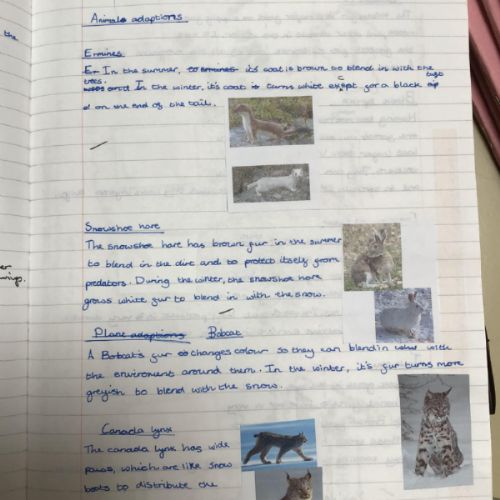 the
Animals adaptions
Ermines
Er In the summer, to ermines it's coat is brown to blend in with the
trees.
and In the winter, it's coat turns white except for a black tip
on the end of the tail.
Snowshoe hare
The snowshoe hare has brown fur in the summer
to blend in the dirt and to protect itself from
predators. During the winter, the snowshoe hare
grows white fur to blend in with the snow.
Plant adaptions Bobcat
A Bobcat's fur changes colour so they can blend in with
the enviroment around them. In the winter, it's fur turns more
greyish to blend with the snow.
Canada lynx
The canada lynx has wide
paws, which are like snow
boots to distribute the